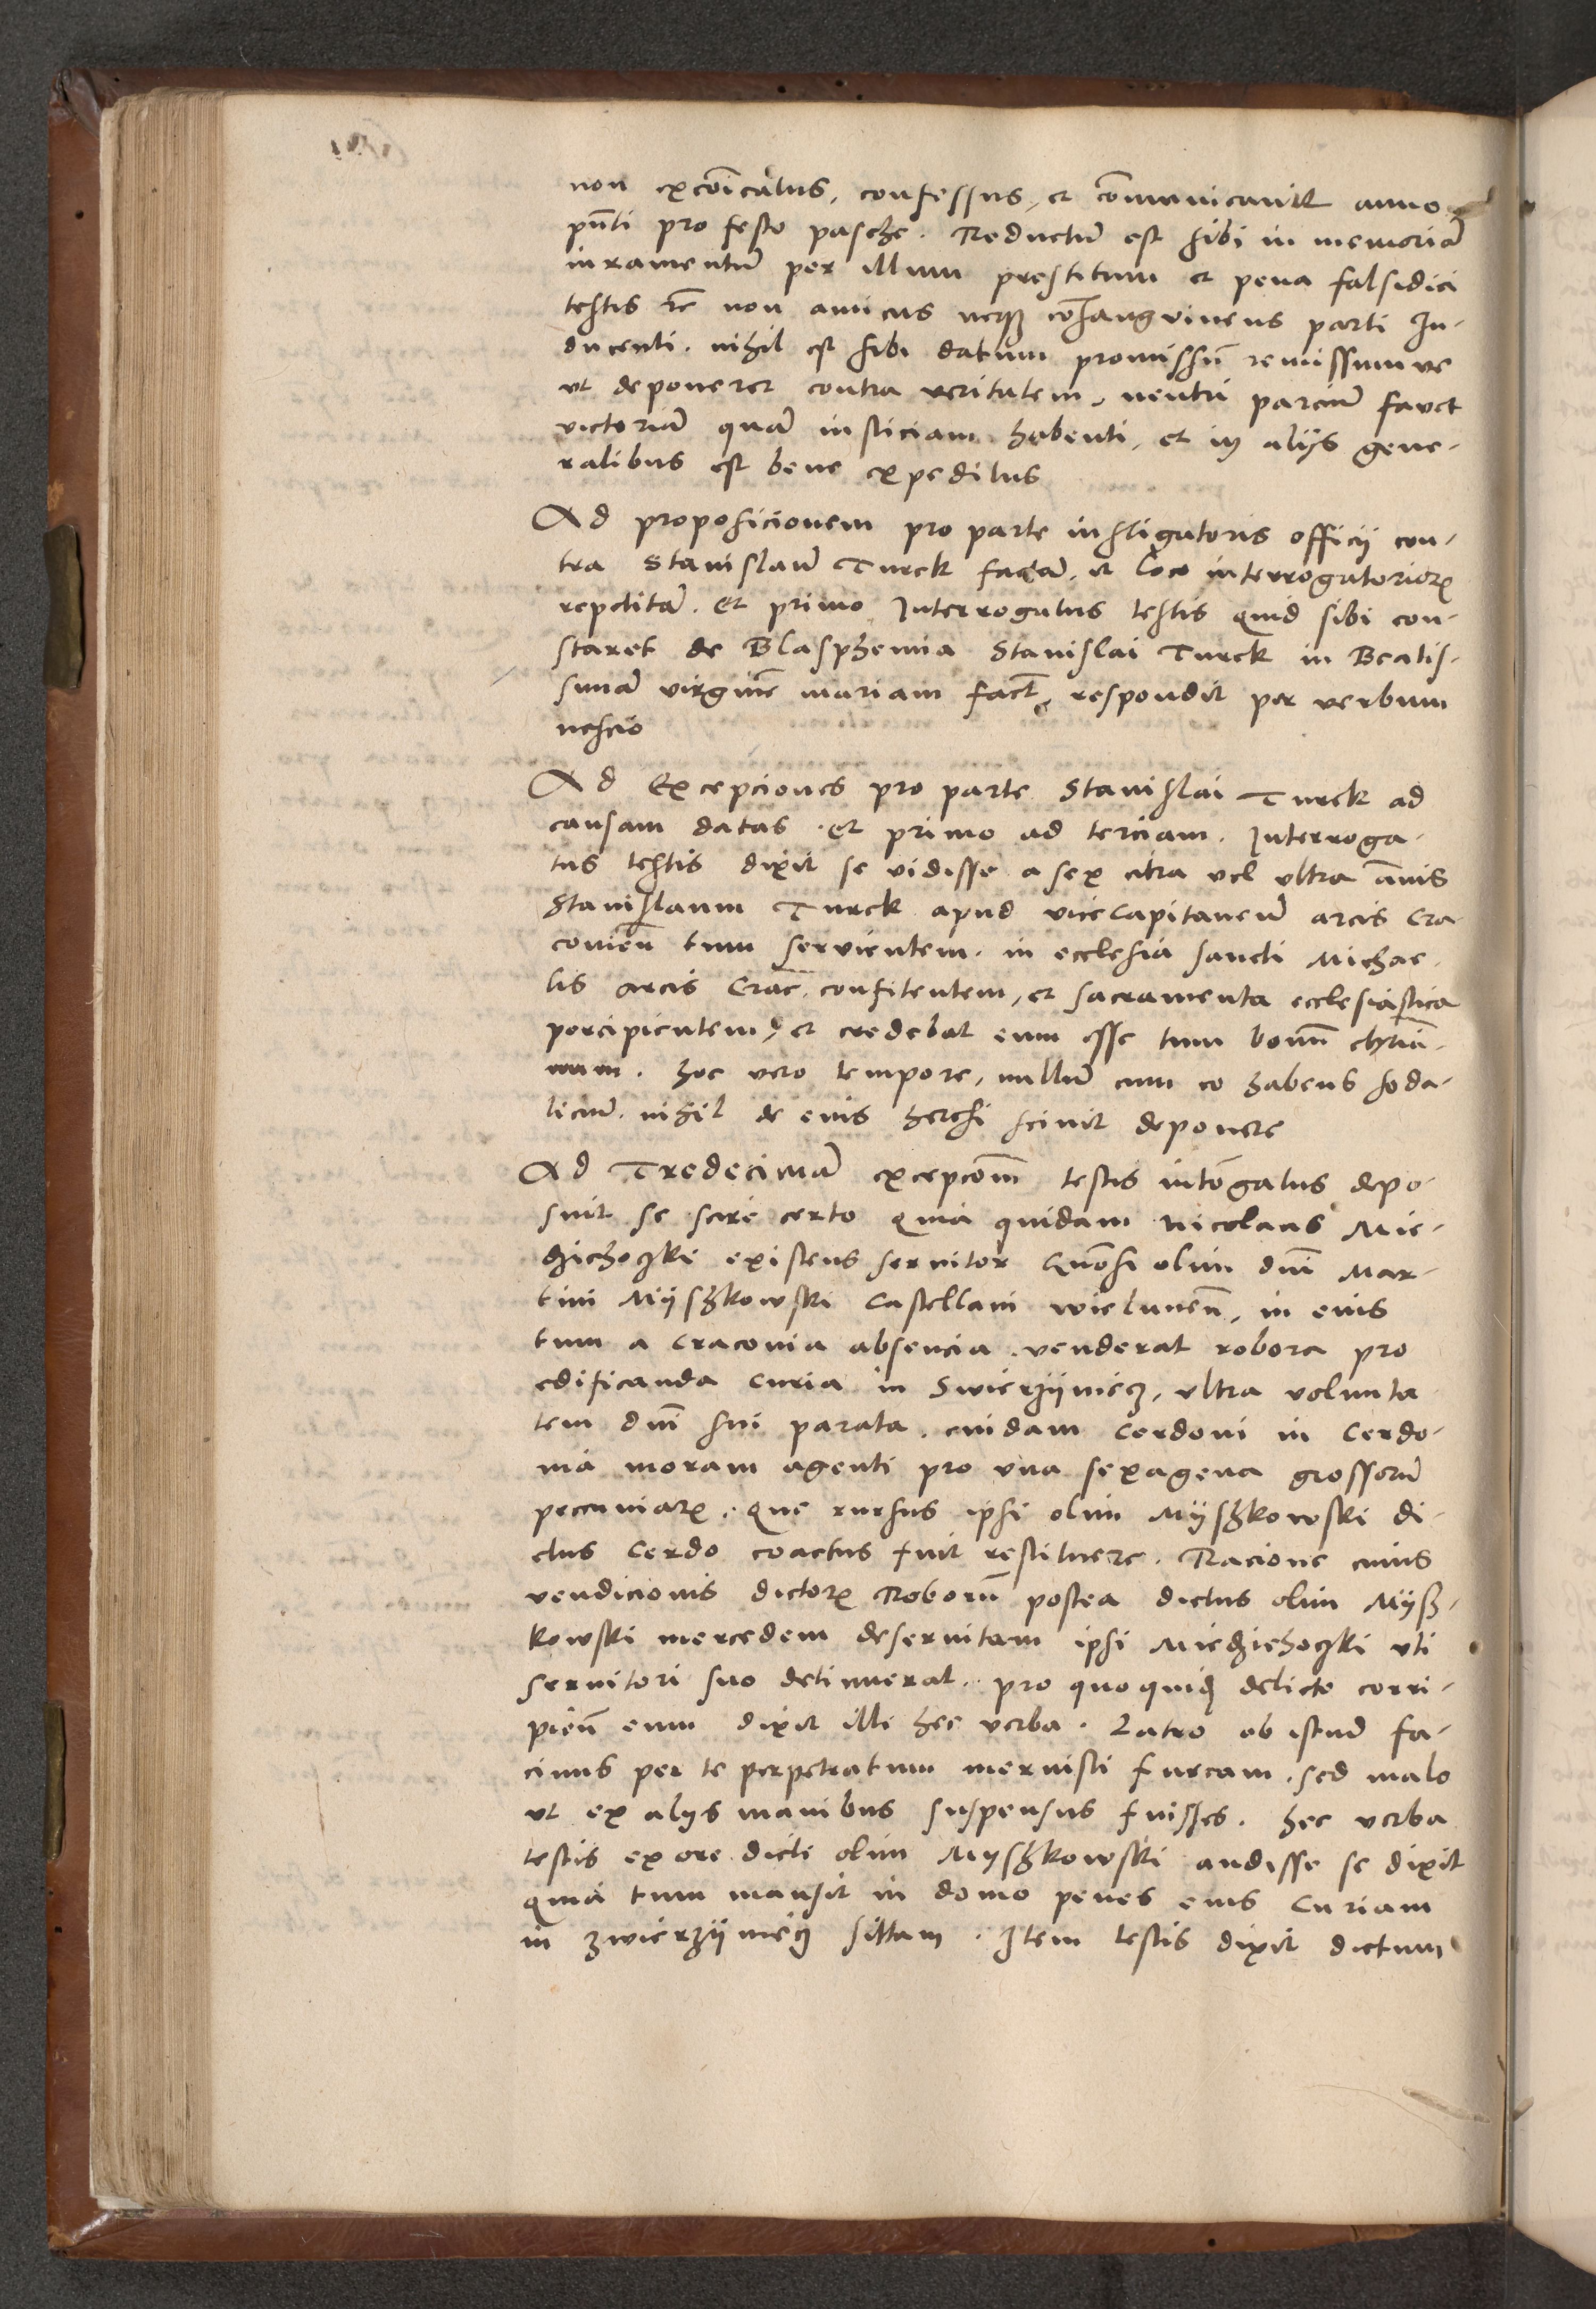 non excōicatus, confessus, et cōmunicavit anno
pn̄ti pro festo pasche. Reductū est sibi in memoriā
iuramentū per illum prestitum et pena falsidici
testis etc̄ non amicus neqȝ cōsangvineus parti In-
ducenti. nihil est sibi datum promissū remissumve
ut deponeret contra veritatem, neutri parciū favet
victoriā quā iusticiam habenti, et in alijs gene-
ralibus est bene expeditus
Ad proposicionem pro parte instigatoris officij con-
tra Stanislaū Turek factā, et loco interrogatorioꝝ
repetitā. Et primo Interrogatus testis quid sibi con-
staret de Blasphemia Stanislai Turek in Beatis-
simā virginē mariam fact̄, respondit per verbum
nescio
Ad Excepciones pro parte Stanislai Turek ad
causam datas. et primo ad terciam. Interroga-
tus testis dixit se vidisse a sex citra vel ultra ānis
Stanislaum Turek apud vicecapitaneū arcis Cra-
couieñ tum servientem. in ecclesia sancti Michae-
lis arcis Crac̄. confitentem, et sacramenta ecclesiastica
percipientem, et credebat eum esse tum bonū chr̄tia-
num. hoc vero tempore, nullū cum eo habens soda-
liciū. nihil de eius heresi scivit deponere
Ad Tredecimā excepcōm testis intōgatus depo-
suit se scire certo quia quidam Nicolaus Mie-
dzichoczki existens servitor Gn̄osi olim dn̄i Mar-
tini Myszkowski Castellani wielunen̄, in eius
tum a Cracovia absencia. venderat robora pro
edificanda curia in Swierzyniecz, ultra volunta
tem dn̄i sui parata. cuidam Cerdoni in Cerdo-
nia moram agenti pro una sexagena grossorū
pecuniaꝝ. que rursus ipsi olim Myszkowski di-
ctus Cerdo coactus fuit restituere. Racione cuius
vendicionis dictoꝝ Roborū postea dictus olim Mysz-
kowski mercedem deservitam ipsi Miedziehoczki uti
servitori suo detinuerat. pro quoquidē delicto corri-
pien̄ eum dixit illi hec verba. Latro ob istud fa-
cinus per te perpetratum meruisti furcam. sed malo
ut ex alijs manibus suspensus fuisses. hec verba
testis ex ore dicti olim Myszkowski audisse se dixit
quia tum mansit in domo penes eius Curiam
in Zwierzyniecz sittam. Item testis dixit dictum